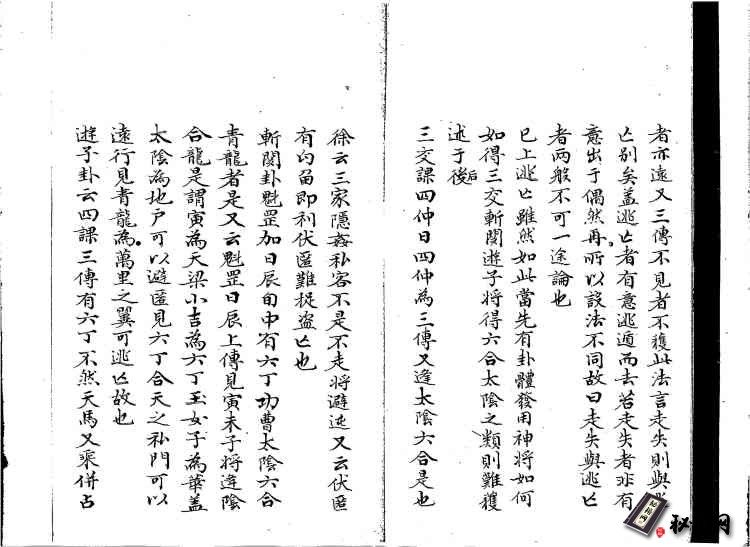 者亦遠又三傳不見者不獲此法言走失則與
亡別矣蓋逃亡者有意逃遁而去若走失者非有
意出于偶然再所以設法不同故曰走失與逃亡
者两般不可一途論也
已上逃亡雖然如此當先有卦體發用神將如何
如得三交斬関遊子將得六合太陰之類則難獲
述于後后
三交課四仲日四仲為三傳又逢太陰六合是也
徐云三家隱姦私客不是不走將避迍又云伏匿
有勾留即利伏匿難捉盜亡也
斬関卦魁罡加日辰旬中有六丁功曹太陰六合
青龍者是又云魁罡日辰上傳見寅未子將逢陰
合龍是謂寅為天梁小吉為六丁玉女子為華蓋
太陰為地户可以避匿見六丁合天之私門可以
遠行見青龍為萬里之翼可逃亡故也
遊子卦云四課三傳有六丁不然天馬又乘併占
秘 网